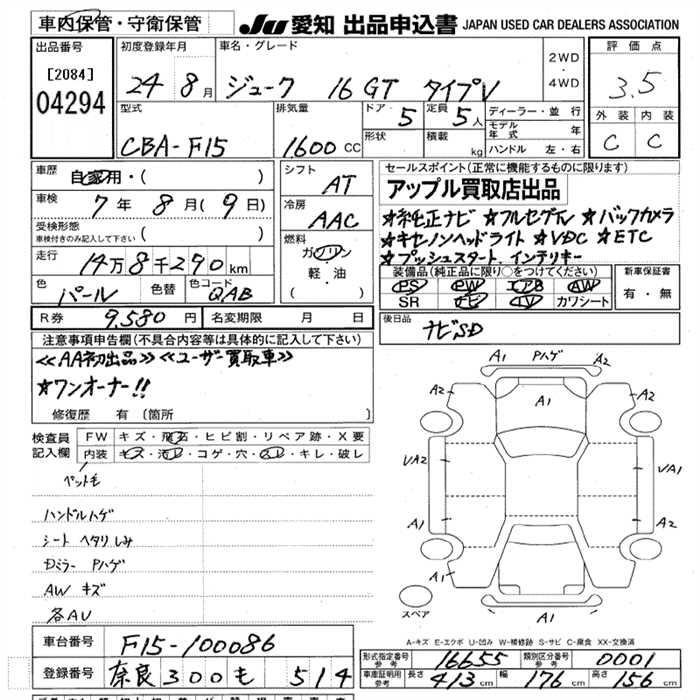 車内保管・守衛保管
JU 愛知 出品申込書 JAPAN USED CAR DEALERS ASSOCIATION
出品番号
[2084]
04294
初度登録年月
24 8月
車名・グレード
ジューク 16GT タイプV
2WD
・
4WD
評価点
3.5
外装 内装
C C
型式
CBA-F15
排気量
1600 CC
ドア・
5
形状
定員
5人
積載
kg
ディーラー・並行
モデル年式 年
ハンドル 左・右
車歴
自家用・( )
車検
7年 8月(9日)
受検形態
車検付きのみ記入して下さい ( )
走行
14万8千290km
色
パール
色替
色コード
QAB
シフト
AT
冷房
AAC
燃料
ガソリン
軽・油
( )
セールスポイント(正常に機能するものに限ります)
アップル買取店出品
★純正ナビ ★フルセグTV ★バックカメラ
★キセノンヘッドライト ★VDC ★ETC
★プッシュスタート、インテリキー
装備品(純正品に限り○をつけてください)
PS PW エアB AW
SR ナビ TV カワシート
新車保証書
有・無
R券 9,580円 名変期限 月 日
後日品
ナビSD
注意事項申告欄(不具合内容等は具体的に記入して下さい)
<<AA初出品>> <<ユーザー買取車>>
★ワンオーナー!!
修復歴 有 [箇所 ]
検査員
記入欄
FW キズ・飛石・ヒビ割・リペア跡・X要
内装 キズ・汚レ・コゲ・穴・スレ・キレ・破レ
ペット毛
ハンドルハゲ
シート ヘタリ しみ
Dミラー Pハゲ
AW キズ
各AU
A1 Pハゲ A2
A2 A1 A2
VA2 VA2
A1 A2
A1
スペア
A1
A-キズ E-エクボ U-凹み W-補修跡 S-サビ C-腐食 XX-交換済
車台番号 F15-100086
登録番号 奈良 300 も 514
形式指定番号
参考 16655
類別区分番号
参考 0001
車庫証明用
参考 長さ 413cm 幅 176cm 高さ 156cm